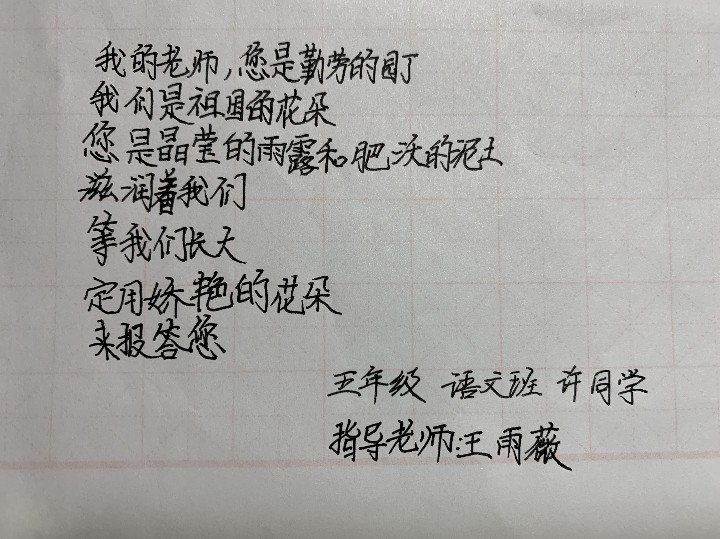 我的老师,您是勤劳的园丁
我们是祖国的花朵
您是晶莹的雨露和肥沃的泥土
滋润着我们
等我们长大
定用娇艳的花朵
来报答您
五年级 语文班 许同学
指导老师:王雨薇